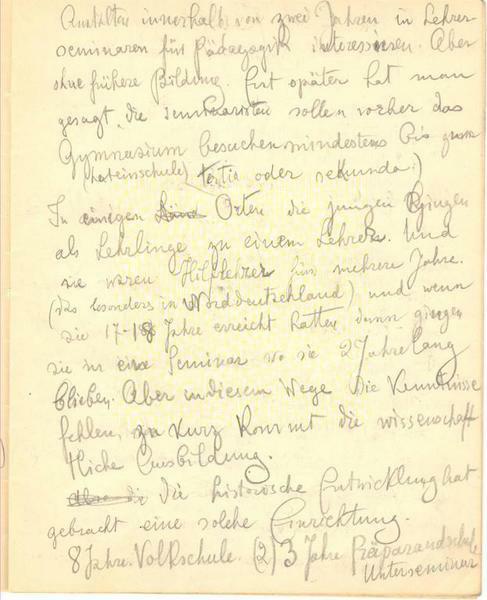 Anstalten innerhalb von zwei Jahren in Lehrer-
seminaren für Pädagogik interessieren. Aber
ohne frühere Bildung. Erst später hat man
gesagt, die Seminaristen sollen vorher das
Gymnasium besuchen mindestens bis
(Lateinschule) tertia oder sekunda.)
In einigen Länd Orten die jungen gingen
als Lehrlinge zu einem Lehrer. Und
sie waren Hilfslehrer für mehrere Jahre.
(das besonders in Norddeutschland) und wenn
sie 17-18 Jahre erreicht hatten dann gingen
sie ins eine Seminar wo sie 2 Jahre lang
blieben. Aber in diesem Wege die Kenntnisse
fehlen, zu kurz kommt die wissenschaft
tliche Ausbildung.
Also die die historische Entwicklung hat
gebracht eine solche Einrichtung.
8 Jahre. Volkschule. (2) 3 Jahre Präparandschule
Unterseminar